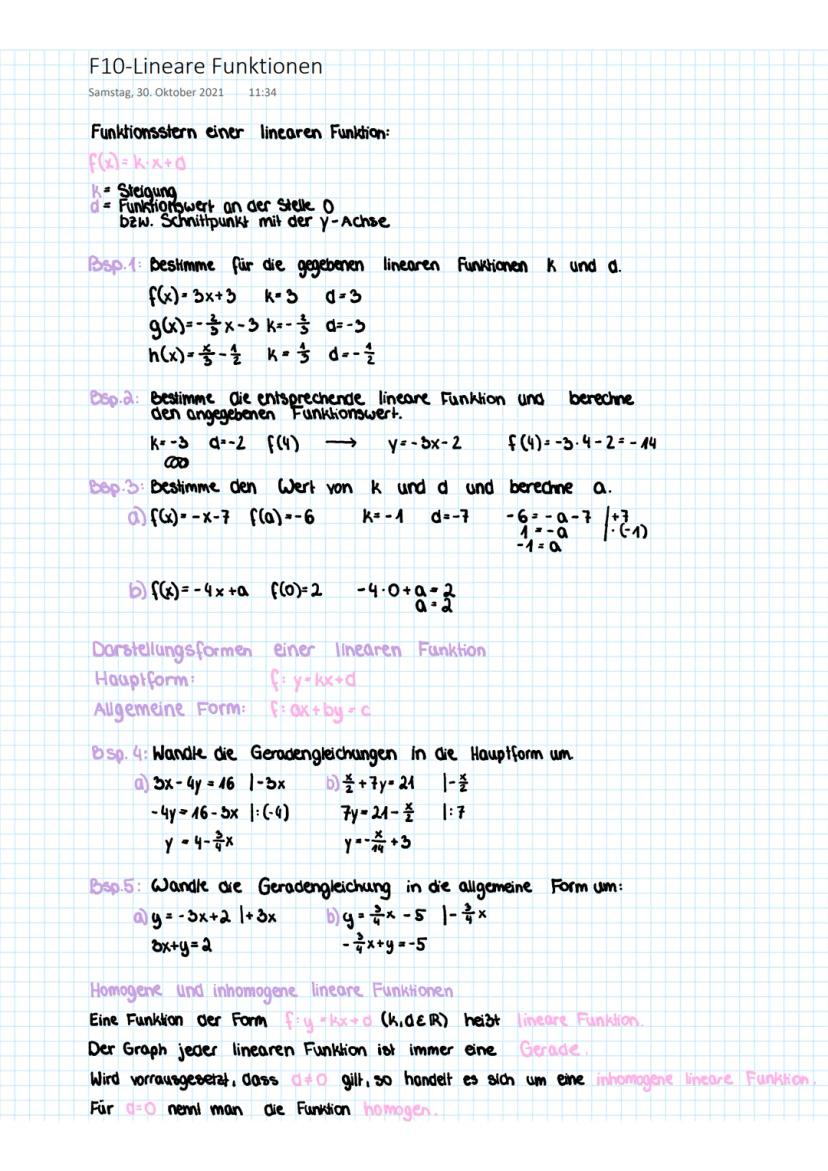 F10-Lineare Funktionen
Samstag, 30. Oktober 2021 11:34
Funktionsstern einer linearen Funktion:
f(x)=k·x+d
k = Steigung
d = Funktionswert an der Stelle 0
bzw. Schnittpunkt mit der y-Achse
Bsp.1: Bestimme für die gegebenen linearen Funktionen k und d.
f(x)=3x+3 k=3 d=3
g(x)=-2/3 x-3 k=-2/3 d=-3
h(x)=x/3-1/2 k=1/3 d=-1/2
Bsp.2: Bestimme die entsprechende lineare Funktion und berechne
den angegebenen Funktionswert.
k=-3 d=-2 f(4) → y=-3x-2 f(4)=-3·4-2=-14
Bsp.3: Bestimme den Wert von k und d und berechne a.
a) f(x)=-x-7 f(a)=-6 k=-1 d=-7 -6=-a-7 |+7
1=-a |·(-1)
-1=a
b) f(x)=-4x+a f(0)=2 -4·0+a=2
a=2
Darstellungsformen einer linearen Funktion
Hauptform: f: y=kx+d
Allgemeine Form: f: ax+by=c
Bsp. 4: Wandle die Geradengleichungen in die Hauptform um
a) 3x-4y=16 |-3x b) x/2+7y=21 |-x/2
-4y=16-3x |:(-4) 7y=21-x/2 |:7
y=4-3/4x y=-x/14+3
Bsp.5: Wandle die Geradengleichung in die allgemeine Form um:
a) y=-3x+2 |+3x b) y=3/4x-5 |-3/4x
3x+y=2 -3/4x+y=-5
Homogene und inhomogene lineare Funktionen
Eine Funktion der Form f:y=kx+d (k,d∈ℝ) heißt lineare Funktion.
Der Graph jeder linearen Funktion ist immer eine Gerade.
Wird vorrausgesetzt, dass d≠0 gilt, so handelt es sich um eine inhomogene lineare Funktion.
Für d=0 nennt man die Funktion homogen.